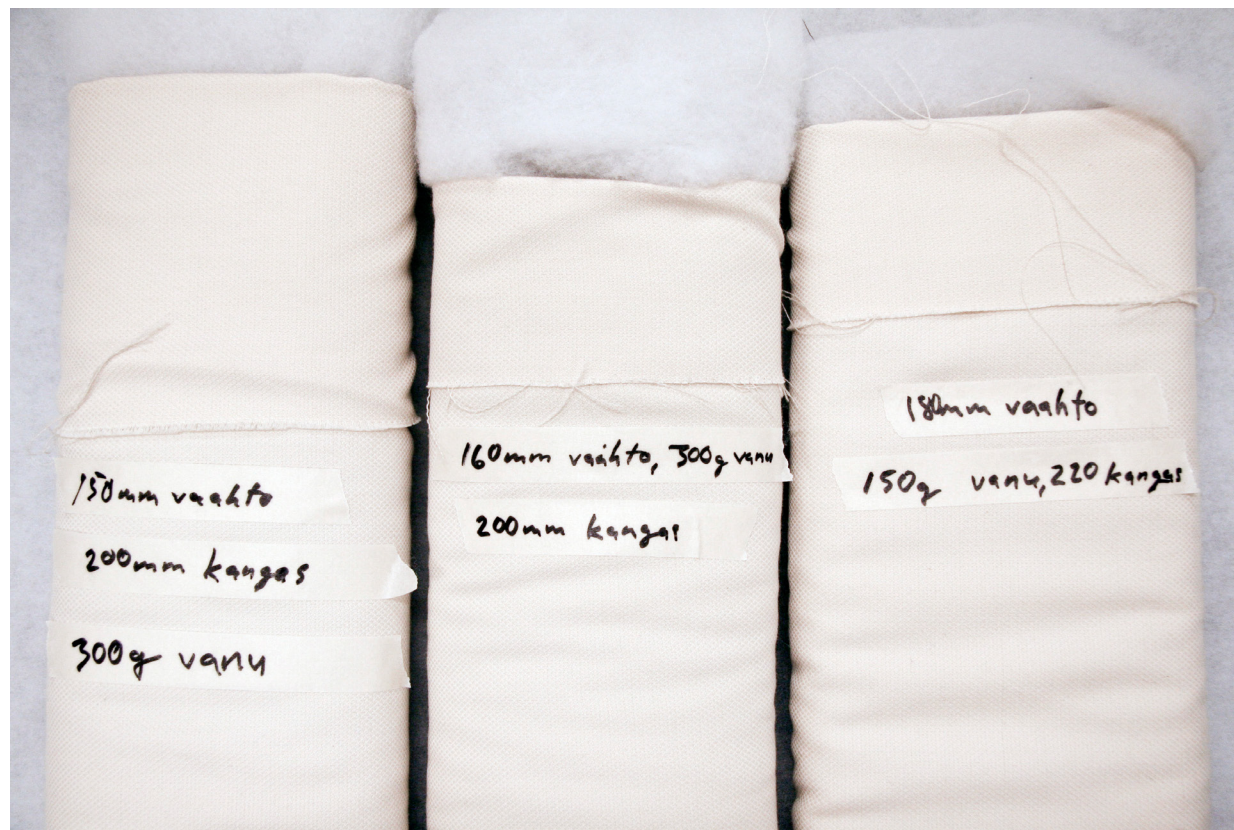 150mm vaahto
200mm kangas
300g vanu
160mm vaahto, 300g vanu
200mm kangas
180mm vaahto
150g vanu, 220 kangas